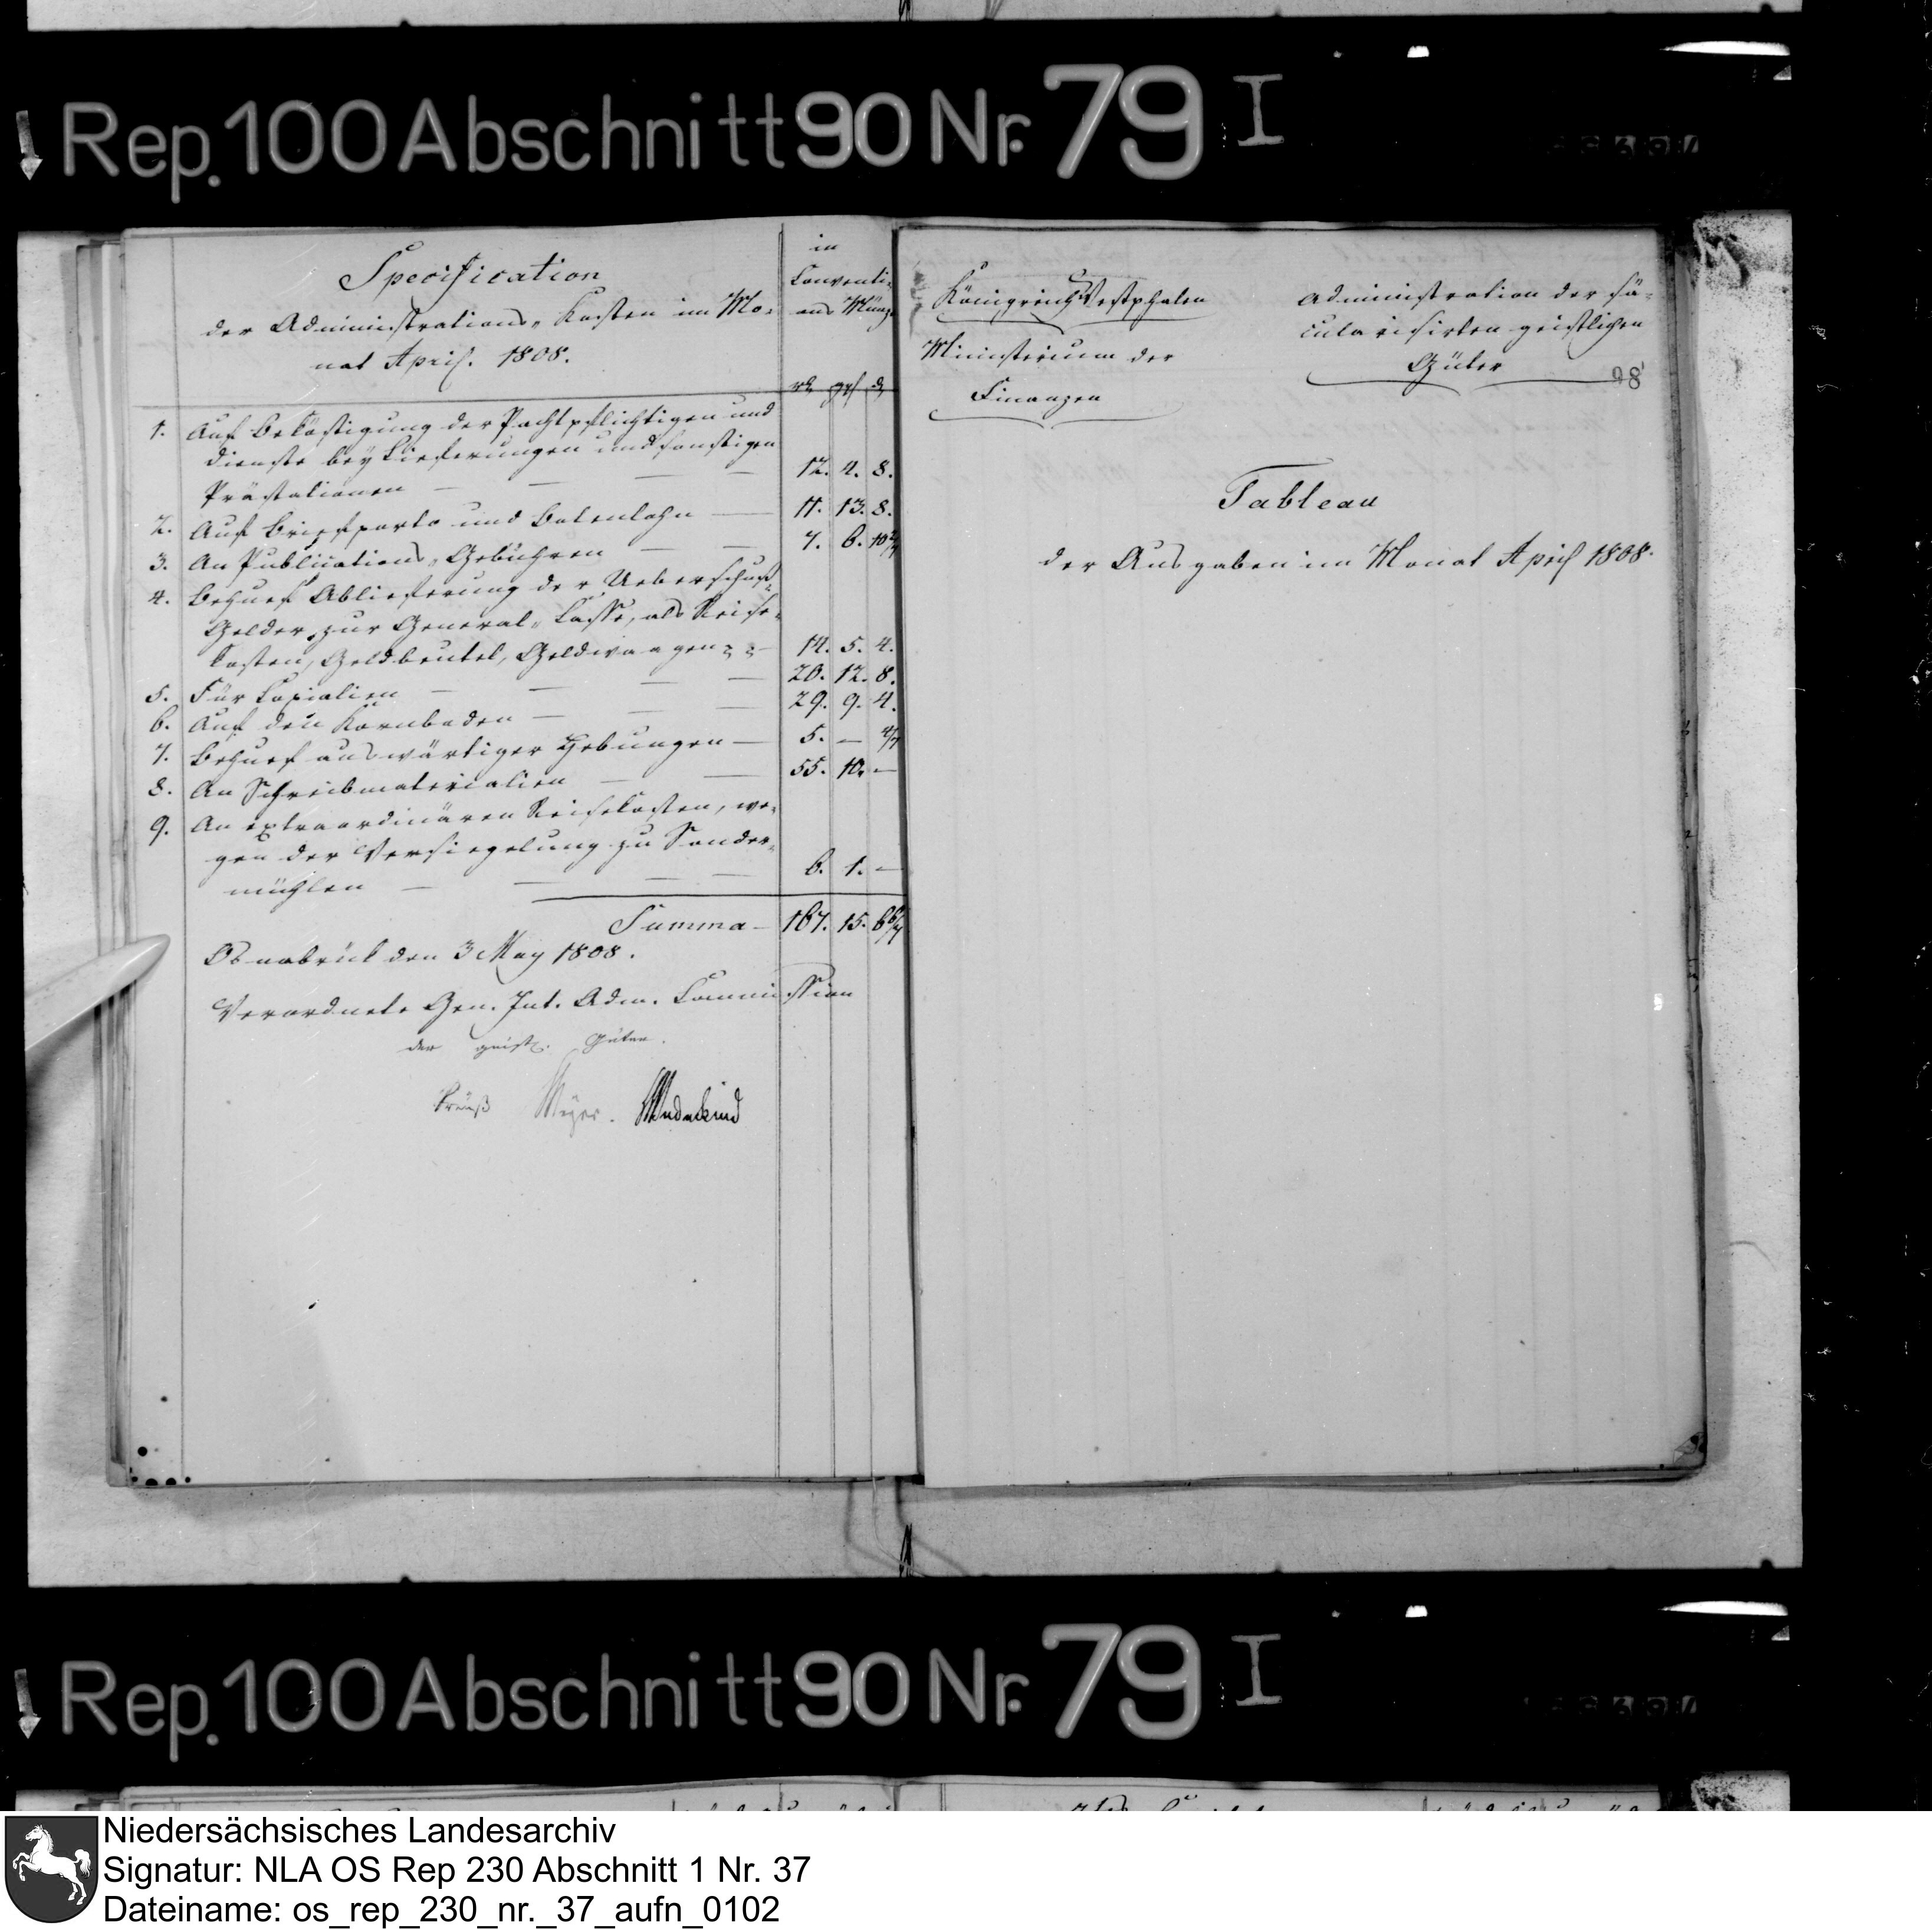 Rep. 100 Abschnitt 90 Nr. 79 I
Specification
der Administrations„ Kosten im Mo-
nat April. 1808.
in
Conventi-
ons Münze
rt ggl d
1. Auf Beköstigung der Pachtpflichtigen und
Dienste bey Lieferungen und sonstigen
Prästationen — — — — 12. 4. 8.
2. Auf Briefporto und Botenlohn — 11. 13. 8.
3. An Publications„ Gebühren — — 7. 6. 10 2/7
4. Behuef Ablieferung der Ueberschuß-
Gelder zur General„ Casse, als Reise-
kosten, Geldbeutel, Geldwaagen — 14. 5. 4.
5. Für Copialien — — — — 20. 12. 8.
6. Auf den Kornboden — — — 29. 9. 4.
7. Behuef auswärtiger Hebungen — 5. — 4/7
8. An Schreibmaterialien — — 55. 10. —
9. An extraordinären Reisekosten, we-
gen der Versiegelung zu Sonder-
mühlen — — — — 6. 1. —
Summa — 167. 15. 6 6/7
Osnabrück den 3 May 1808.
Verordnete Gen. Int. Adm. Commission
der geistl. Güter.
Struckmann Meyer. Wedekind
Königreich Westphalen
Ministerium der
Finanzen
Administration der sä-
cularisirten geistlichen
Güter
98
Tableau
der Ausgaben im Monat April 1808.
Rep. 100 Abschnitt 90 Nr. 79 I
Niedersächsisches Landesarchiv
Signatur: NLA OS Rep 230 Abschnitt 1 Nr. 37
Dateiname: os_rep_230_nr._37_aufn_0102